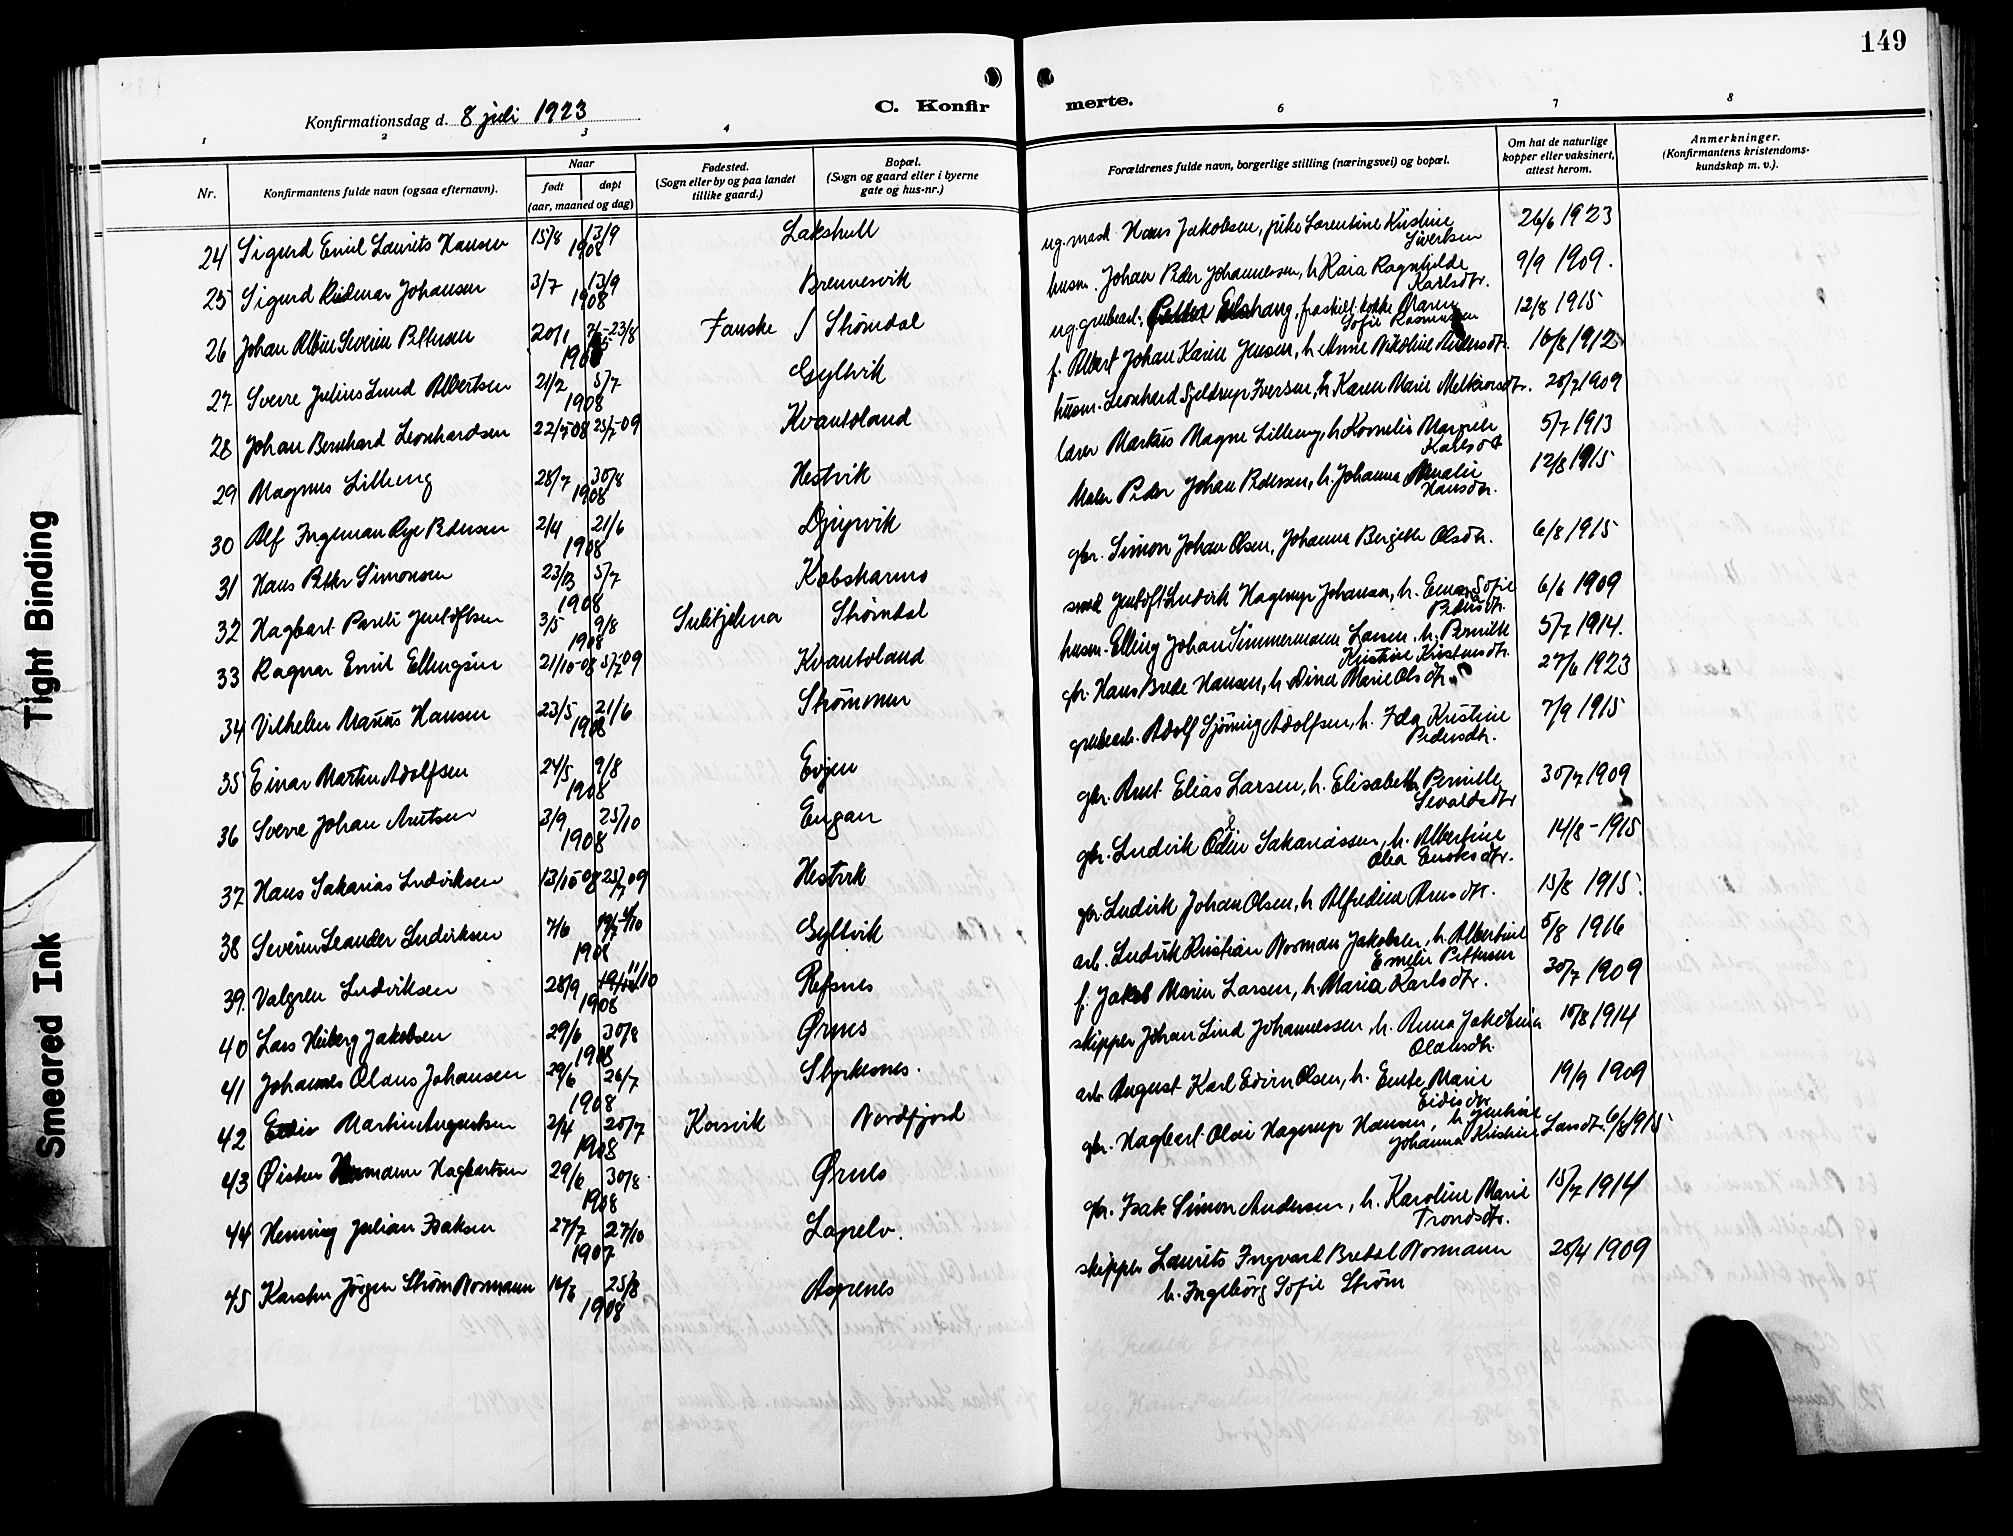 149
Konfirmationsdag d. 8 juli 1923
C. Konfir
merte.
1 2 3 4 6 7 8
Nr.
Konfirmantens fulde navn (ogsaa efternavn).
Naar
født døpt
(aar, maaned og dag)
Fødested.
(Sogn eller by og paa landet
tillike gaard.)
Bopæl.
(Sogn og gaard eller i byerne
gate og hus-nr.)
Forældrenes fulde navn, borgerlige stilling (næringsvei) og bopæl.
Om hat de naturlige
kopper eller vaksinert,
attest herom.
Anmerkninger.
(Konfirmantens kristendoms-
kundskap m. v.).
24 Sigurd Emil Laurits Hansen 15/8 13/9 1908 Lakshull ug. mask Hans Jakobsen, pike Larentine Kristine Sivertsen 26/6 1923
25 Sigurd Johansen 3/7 13/9 1908 Brennesvik husm. Johan Peder Johannessen, h. Kaia Ragnhilde Karlsdtr. 9/9 1909.
26 Johan Albin Severin Pettersen 20/1 23/8 1908 Fauske / Strømdal ug. grubearb. fraskilt kokke Maren Sofie Rasmussen 12/8 1915
27 Sverre Julius Lund Albertsen 21/2 5/7 1908 Gyltvik f. Albert Johan Karin Jensen, h. Anne Nikoline Andersdtr. 16/8 1912
28 Johan Bernhard Leonhardsen 22/5-08 25/7-09 Kvantoland husm. Leonhard Sjeldrup Iversen, h. Karen Marie Melkiorsdtr. 25/7 1909
29 Magnus Lillung 28/7 30/8 1908 Hestvik lærer Markus Magne Lilleeng, h. Kornelie Karlsdtr 5/7 1913
30 Alf Ingeman Rye Pedersen 2/4 21/6 1908 Djupvik Maler Peder Johan Pedersen, h. Johanna Amalie Hansdtr. 12/8 1915
31 Hans Petter Simonsen 5/7 1908 Kobskarmo gbr. Simon Johan Olsen, Johanna Bergitte Olsdtr. 6/8 1915
32 Hagbart Pareli Jentoftsen 3/5 9/8 1908 Sulitjelma Strømdal smed Jentoft Ludvik Hagerup Johansen, h. Emma Sofie Pedersdtr. 6/6 1909
33 Ragnar Emil Ellingsen 21/10-08 5/7-09 Kvantoland husm. Elling Johan Simmermann Larsen, h. Pernille Kristine Kristensdtr. 5/7 1914.
34 Vilhelm Marius Hansen 23/5 21/6 1908 Strømmen gbr. Hans Brede Hansen, h. Dina Marie Olsdtr. 27/6 1923
35 Einar Martin Adolfsen 24/5 9/8 1908 Evjen grubearb. Adolf Sjöning Adolfsen, h. Ida Kristine Pedersdtr. 7/9 1915
36 Sverre Johan Arntsen 3/9 25/10 1908 Engan gbr. Arnt Elias Larsen, h. Elisabeth Pernille Sivaldsdtr 30/7 1909
37 Hans Sakarias Ludviksen 13/10-08 25/7 09 Hestvik gbr. Ludvik Odin Sakariassen, h. Albertine Olea Enoksdtr. 14/8-1915
38 Severin Leander Ludviksen 7/6 1908 Gyltvik gbr. Ludvik Johan Olsen, h. Alfredine Arnsdtr. 15/8 1915.
39. Valgren Ludviksen 28/9 11/10 1908 Refsnes arb. Ludvik Kristian Norman Jakobsen, h. Albertine Emelie Pettersen 5/8 1916
40 Lars Heiberg Jakobsen 29/6 30/8 1908 Ørnes f. Jakob Marin Larsen, h. Maria Karlsdtr. 30/7 1909
41 Johannes Olaus Johansen 29/6 26/7 1908 Styrkesnes. skipper Johan Lind Johannessen, h. Anna Jakobina Olausdtr. 15/8 1914
42 Eidis Martin Augustsen 2/4 25/7 1908 Korsvik Nordfjord arb. August Karl Edvin Olsen, h. Emte Marie Eidisdtr 19/9 1909
43 Øisten Hermann Hagbartsen 29/6 30/8. 1908 Ørnes gbr. Hagbart Olai Hagerup Hansen, h. Jentine Johanna Kristine Larsdtr. 6/8 1915
44 Henning Julian Isaksen 27/7 27/10 1907 Lapelv. gbr. Isak Simon Andersen, h. Karoline Marie Trondsdtr. 15/7 1914
45 Karsten Jörgen Strøm Normann 25/8 1908 Aspenes skipper Laurits Ingvard Bredal Normann h. Ingeborg Sofie Strøm 28/4 1909
Tight Binding
Smeared Ink